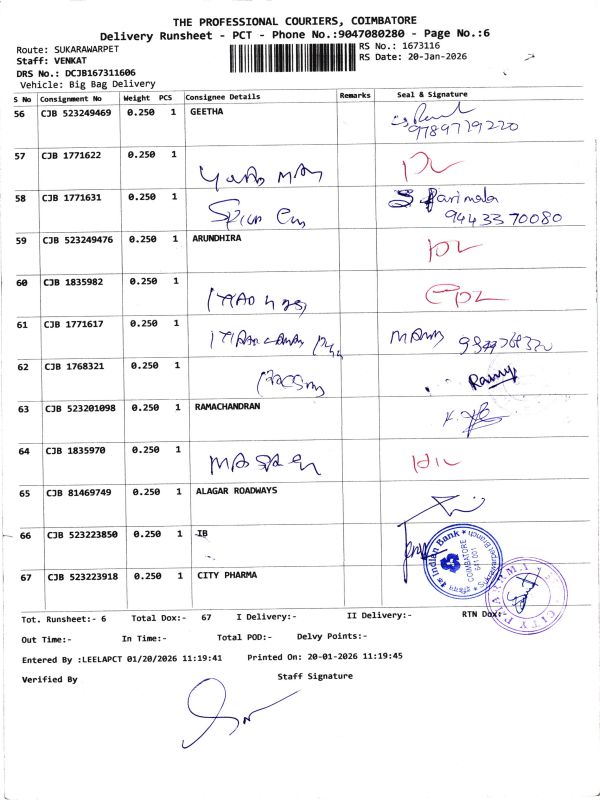 THE PROFESSIONAL COURIERS, COIMBATORE
Delivery Runsheet - PCT - Phone No.:9047080280 - Page No.:6
Route: SUKARAWARPET
RS No.: 1673116
Staff: VENKAT
RS Date: 20-Jan-2026
DRS No.: DCJB167311606
Vehicle: Big Bag Delivery
S No Consignment No Weight PCS Consignee Details Remarks Seal & Signature
56 CJB 523249469 0.250 1 GEETHA
9789779220
57 CJB 1771622 0.250 1
58 CJB 1771631 0.250 1 S. Parimala
94433 70080
59 CJB 523249476 0.250 1 ARUNDHIRA
60 CJB 1835982 0.250 1
61 CJB 1771617 0.250 1
62 CJB 1768321 0.250 1 Ramy
63 CJB 523201098 0.250 1 RAMACHANDRAN
64 CJB 1835970 0.250 1
65 CJB 81469749 0.250 1 ALAGAR ROADWAYS
66 CJB 523223850 0.250 1 IB
Indian Bank
COIMBATORE
641 001
67 CJB 523223918 0.250 1 CITY PHARMA
CITY PHARMA
Tot. Runsheet:- 6 Total Dox:- 67 I Delivery:- II Delivery:- RTN Dox:-
Out Time:- In Time:- Total POD:- Delvy Points:-
Entered By :LEELAPCT 01/20/2026 11:19:41 Printed On: 20-01-2026 11:19:45
Verified By Staff Signature